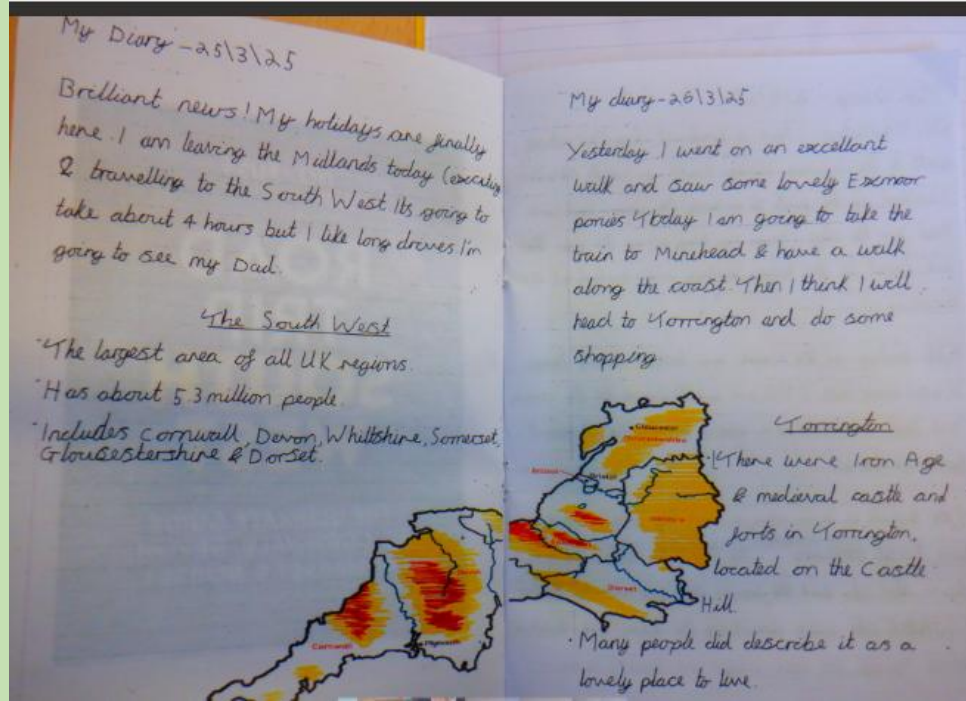 My Diary - 25\3\25
Brilliant news! My holidays are finally
here. I am leaving the Midlands today (exciting
& travelling to the South West Its going to
take about 4 hours but I like long drives. I'm
going to see my Dad.
The South West
·The largest area of all UK regions.
·Has about 5.3 million people.
·Includes Cornwall, Devon, Whiltshire, Somerset,
Gloucestershire & Dorset.
Cornwall
Plymouth
My diary - 26\3\25
Yesterday I went on an excellant
walk and saw some lovely Exmoor
ponies Today I am going to take the
train to Minehead & have a walk
along the coast. Then I think I will
head to Torrington and do some
shopping.
Gloucester
Gloucestershire
Bristol
Bristol
Dorset
Torrington
·There were Iron Age
& medieval castle and
forts in Torrington,
located on the Castle
Hill.
·Many people did describe it as a
lovely place to live.